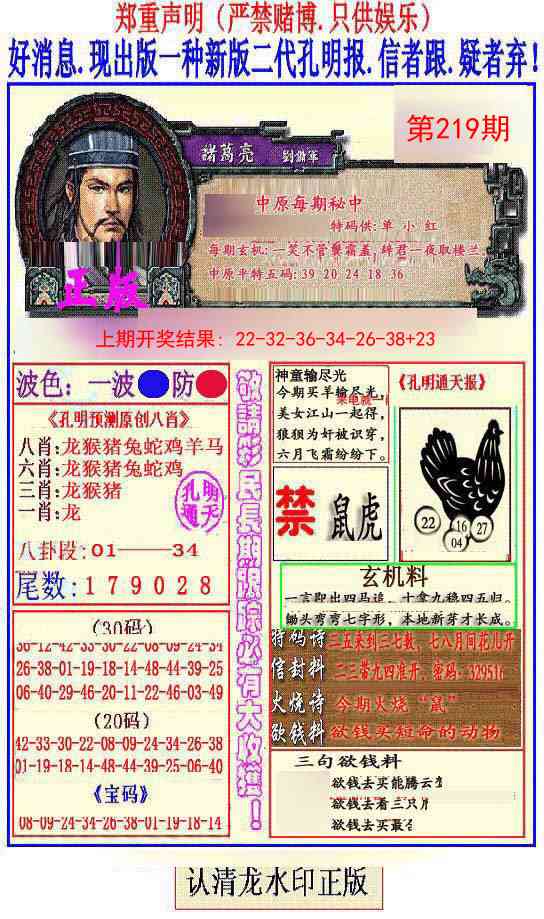 郑重声明（严禁赌博.只供娱乐）
好消息.现出版一种新版二代孔明报.信者跟.疑者弃！
第219期
諸葛亮
劉備軍
中原每期秘中
特码供:单 小 红
每期玄机:一笑不管襲霜盖,辞君一夜取楼兰.
中原平特五码:39 20 24 18 36
正版
上期开奖结果：22-32-36-34-26-38+23
波色：一波 防
《孔明预测原创八肖》
八肖:龙猴猪兔蛇鸡羊马
六肖:龙猴猪兔蛇鸡
三肖:龙猴猪
一肖:龙
孔明
通天
八卦段:01——34
尾数:179028
(30码)
36-12-42-33-30-22-08-09-24-34
26-38-01-19-18-14-48-44-39-25
06-40-29-46-20-11-22-46-03-49
(20码)
42-33-30-22-08-09-24-34-26-38
01-19-18-14-48-44-39-25-06-40
《宝码》
08-09-24-34-26-38-01-19-18-14
敬請彩民長期跟踪必有大收獲！
神童输尽光
今期买羊输尽光,
美女江山一起得,
狼狈为奸被识穿,
六月飞霜纷纷下。
《孔明通天报》
22
16
27
04
禁
鼠虎
玄机料
一言即出四马追，十拿九稳四五归。
锄头弯弯七字形，本地新芽才长成。
特码诗 三五来到三七数，七八月间花儿开
信封料 二三带九四准开，密码：329516
火烧诗 今期火烧“鼠”
欲钱料 欲钱买短命的动物
三句欲钱料
欲钱去买能腾云
欲钱去看三只
欲钱去买最
认清龙水印正版